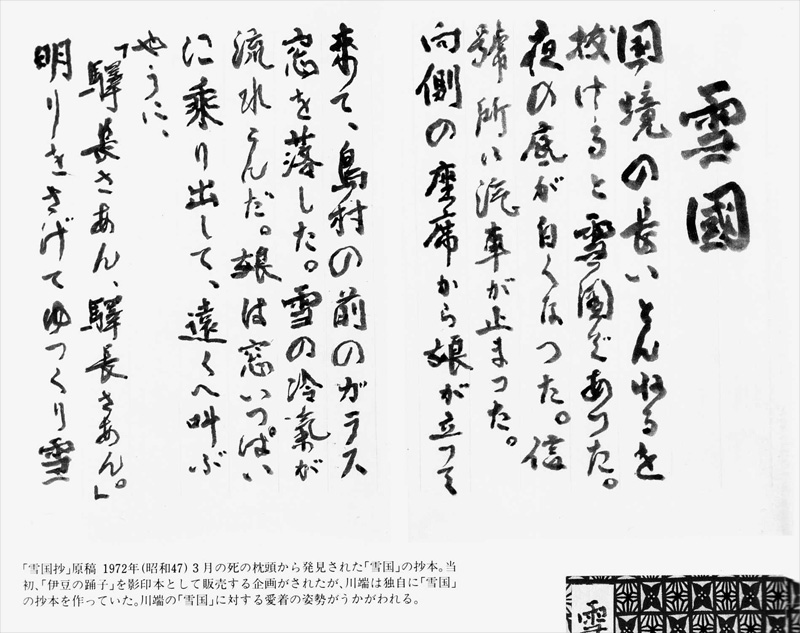 雪國
国境の長いとんねるを
抜けると雪国であつた。
夜の底が白くなつた。信
號所に汽車が止まつた。
向側の座席から娘が立つて
来て、島村の前のガラス
窓を落した。雪の冷氣が
流れこんだ。娘は窓いつぱい
に乗り出して、遠くへ叫ぶ
やうに、
「驛長さあん、驛長さあん。」
明りをさげてゆつくり雪
「雪国抄」原稿 1972年(昭和47)3月の死の枕頭から発見された「雪国」の抄本。当
初、「伊豆の踊子」を影印本として販売する企画がされたが、川端は独自に「雪国」
の抄本を作っていた。川端の「雪国」に対する愛着の姿勢がうかがわれる。
雪